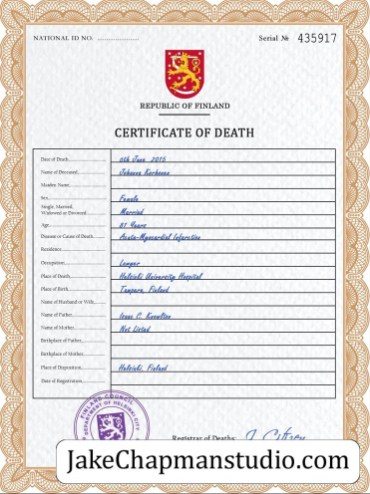 NATIONAL ID NO.
Serial № 435917
REPUBLIC OF FINLAND
CERTIFICATE OF DEATH
Date of Death June 2015
Name of Deceased Johanna Korhonen
Maiden Name
Sex Female
Single, Married,
Widowed or Divorced Married
Age 81 Years
Disease or Cause of Death Acute-Myocardial Infarction
Residence
Occupation Lawyer
Place of Death Helsinki University Hospital
Place of Birth Tampere, Finland
Name of Husband or Wife
Name of Father C. Knowlton
Name of Mother Not Listed
Birthplace of Father
Birthplace of Mother
Place of Disposition Helsinki, Finland
Date of Registration
FINLAND COUNCIL
DEPARTMENT OF HELSINKI CITY
Registrar of Deaths:
JakeChapmanstudio.com